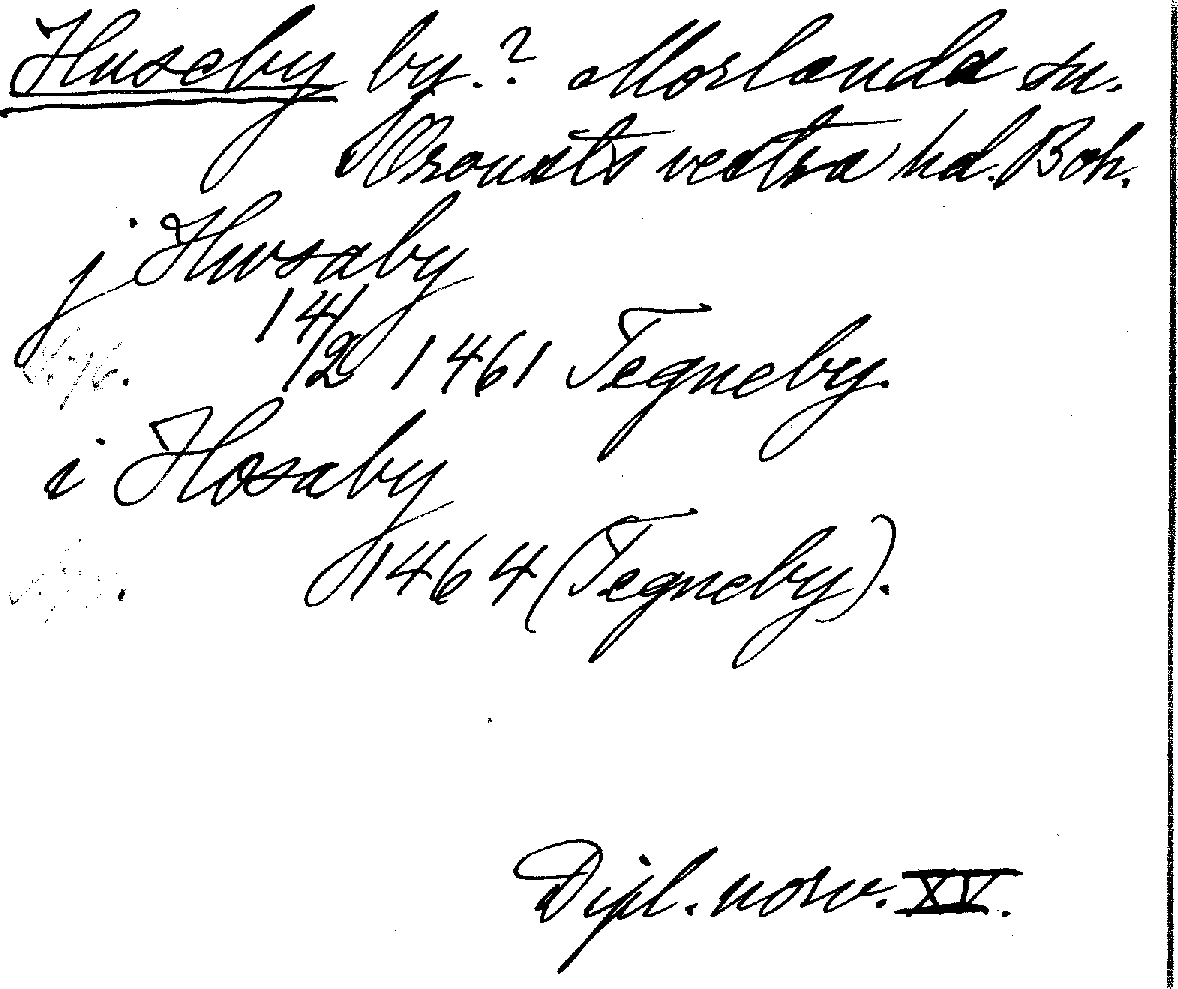 Huseby by.? Morlanda sn.
Orousts vestra hd. Boh.
j Hwsaby
14/2 1461 Tegneby.
i Hosaby
1464 (Tegneby).
Dipl. norv. XV.